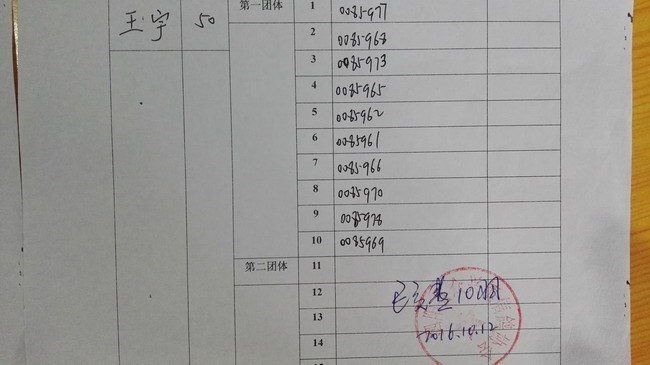 王宇 50 第一团体 1 0085977
2 0085968
3 0085973
4 0085965
5 0085962
6 0085961
7 0085966
8 0085970
9 0085978
10 0085969
第二团体 11
12
13
2016.10.12
14